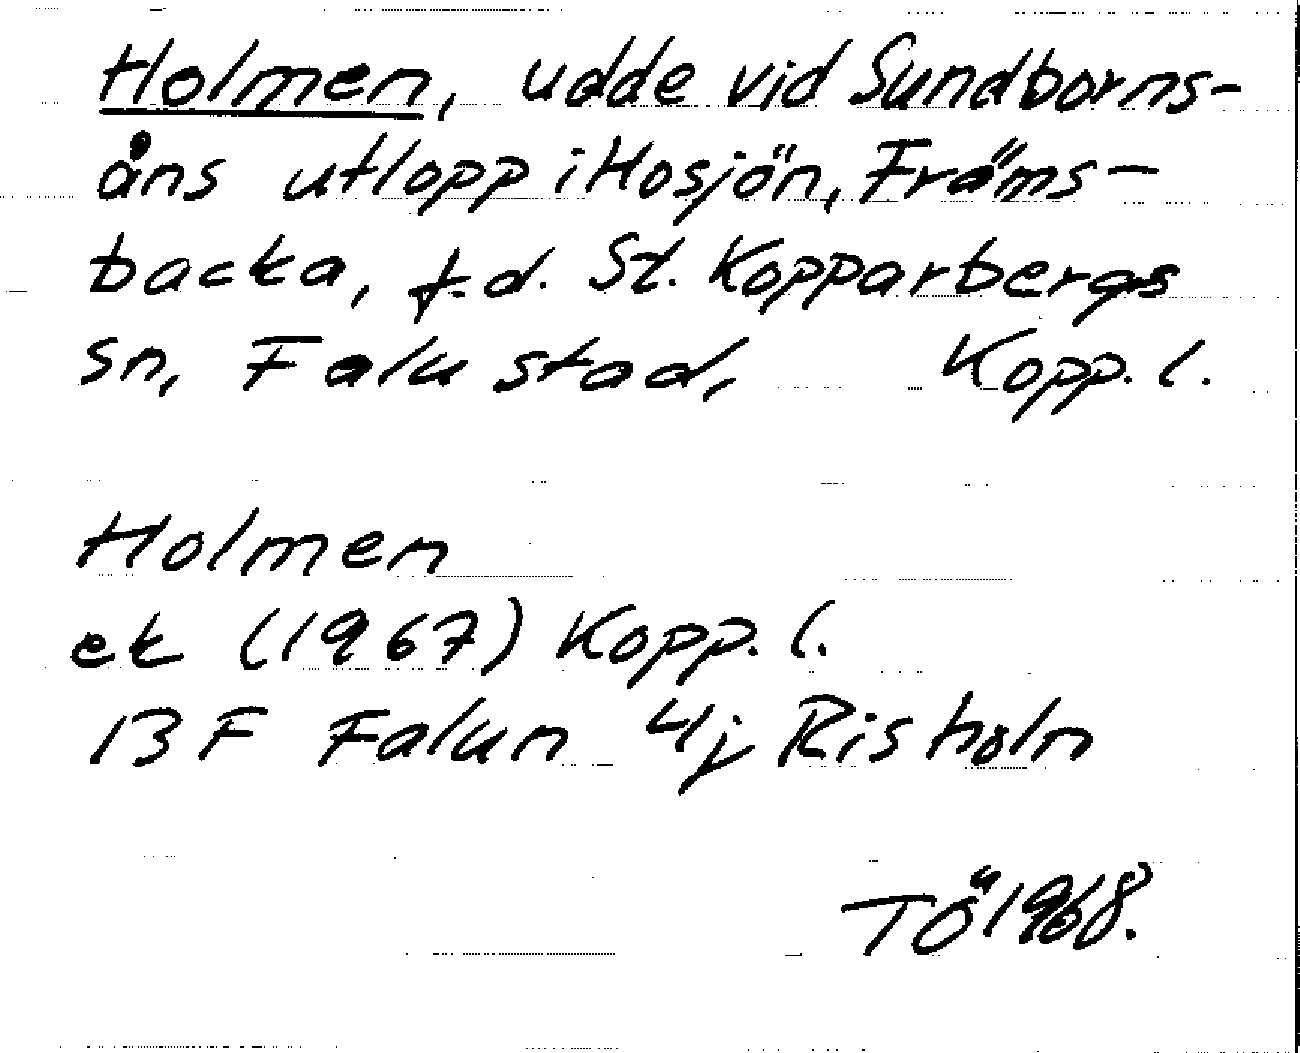 Holmen, udde vid Sundborns-
åns utlopp i Hosjön, Främs-
backa, f.d. St. Kopparbergs
sn, Falu stad, Kopp. l.
Holmen
ek (1967) Kopp. l.
13 F Falun 4j Risholn
TÖ 1968.